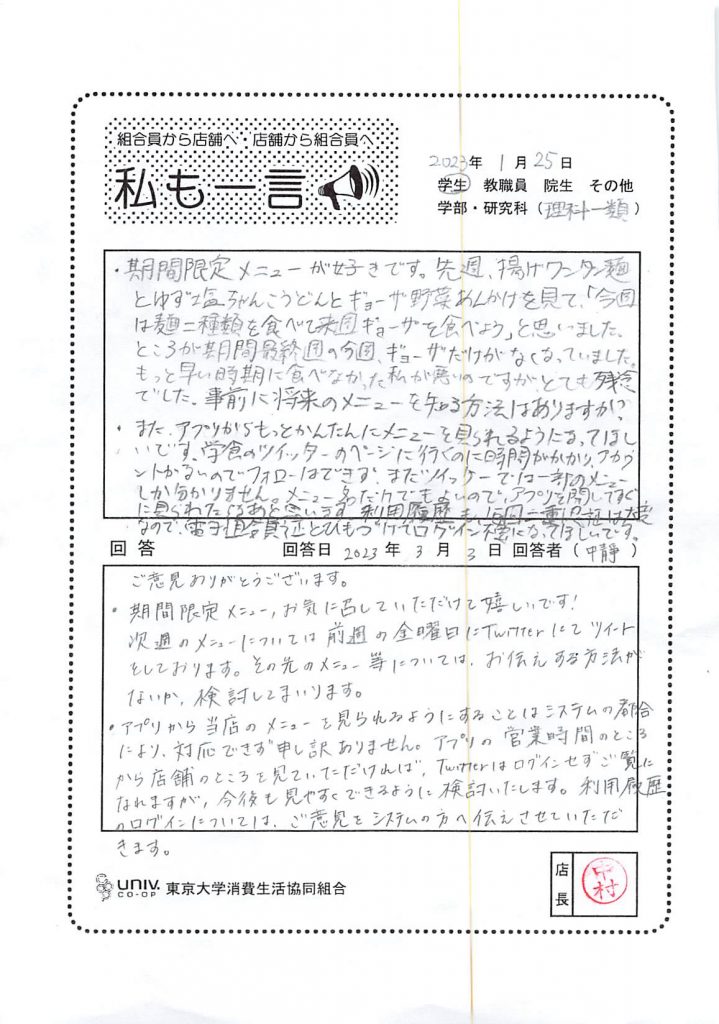 組合員から店舗へ・店舗から組合員へ
私も一言
2023年 1月 25日
学生 教職員 院生 その他
学部・研究科（理科一類）
・期間限定メニューが好きです。先週、揚げワンタン麺
とゆず塩ちゃんこうどんとギョーザ野菜あんかけを見て、「今回
は麺二種類を食べて来週ギョーザを食べよう」と思いました。
ところが期間最終週の今週、ギョーザだけがなくなっていました。
もっと早い時期に食べなかった私が悪いのですがとても残念
でした。事前に将来のメニューを知る方法はありますか?
・また、アプリからもっとかんたんにメニューを見られるようになってほし
いです。学食のツイッターのページに行くのに時間がかかり、アカウ
ントがないのでフォローはできず、まだツイッターでは一部のメニュー
しか分かりません。メニュー名だけでもよいので、アプリを開いてすぐ
に見られたらなあと思います。利用履歴も、毎回二重認証は大変
なので、電子組合員証とひもづけてログイン不要になってほしいです。
回答 回答日 2023年 3月 3日 回答者（中静）
ご意見ありがとうございます。
・期間限定メニュー、お気に召していただけて嬉しいです!
次週のメニューについては前週の金曜日にTwitterにてツイート
をしております。その先のメニュー等については、お伝えする方法が
ないか、検討してまいります。
・アプリから当店のメニューを見られるようにすることはシステムの都合
により、対応できず申し訳ありません。アプリの営業時間のところ
から店舗のところを見ていただければ、Twitterはログインせずご覧に
なれますが、今後も見やすくできるように検討いたします。利用履歴
のログインについては、ご意見をシステムの方へ伝えさせていただ
きます。
UNIV. CO-OP 東京大学消費生活協同組合
店長 中村